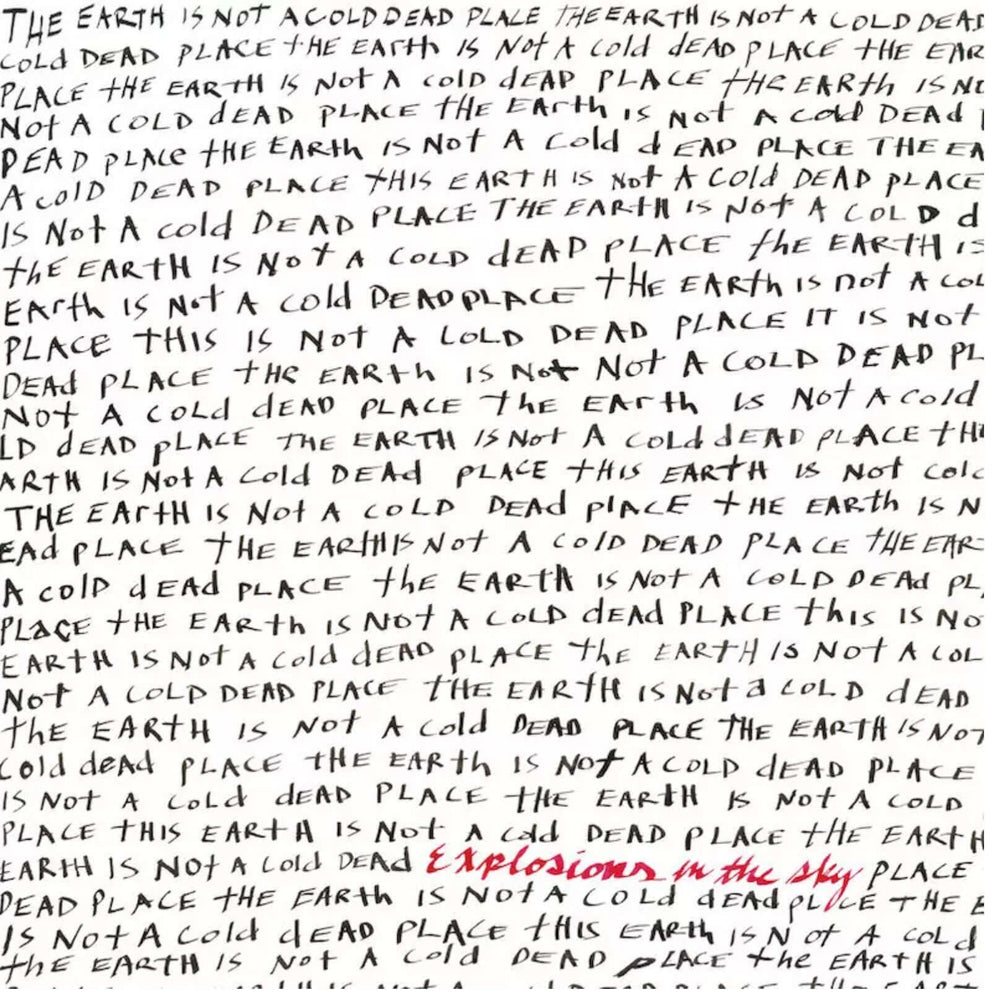 THE EARTH IS NOT A COLD DEAD PLACE THE EARTH IS NOT A COLD DEAD
COLd DEAD PLACE tHE EARth IS Not A Cold dEAD PLACE tHE EAR
PLACE tHE EARTH IS Not A cold dEAD PLACE tHE EARth IS NO
Not A COLD dEAD PLACE tHE EArth is Not A cold DEAd
DEAD pLACe tHE EARth IS Not A Cold dEAD PLACE THE EA
A colD DEAD PLACE tHIS EARTH IS Not A Cold DEAD pLACE
IS Not A cold DEAD PLACE THE EARtH IS Not A COLD d
thE EARtH IS Not A COLD dEAD PLACE thE EARtH IS
EArth IS Not A cold DEAD PLACE tHE EARth IS not A COL
PLACE tHIS IS Not A COLD DEAD PLACE IT IS Not
DEAd pLACE tHe EARth IS Not Not A COLD DEAD PL
Not A COLd dEAD PLACE the EArth Is Not A Cold
LD dEAD pLACE THE EARTH IS Not A COLd dEAD pLACE tH
ARTH IS Not A Cold DEAd PLACE tHIS EARtH IS Not Cold
THE EArtH IS Not A coLD DEAd plACE tHE EARth IS N
EAd pLACE tHE EARtH IS Not A ColD DEAD PLACE tHE EAR
A colD dEAd pLACE the EARth IS Not A COLD DEAd pL
PLaCE tHE EARth IS Not A COLD dEAd PLACE this IS No
EARtH IS Not A Cold dEAD pLACE the EARTH IS Not A COL
Not A COLD DEAD PLACE tHE EARtH IS Not a COLD dEAD
thE EARtH IS Not A Cold DEAD pLACE THE EARtH IS NOT
Cold deAd PLACE tHE EARth IS Not A COLD dEAD PLACE
IS Not A Cold dEAD PLACE tHE EARtH IS Not A COLD
PLACE tHIS EARtH IS Not A cold DEAD pLACE tHE EARTH
EARtH IS Not A Cold DEAd Explosions in the sky PLACE
DEAD PLACE tHE EARth IS Not A COLd dEAd pLACE THE E
IS Not A Cold dEAD PLACE tHIS EARth IS Not A COLd
the EARtH IS Not A Cold DEAD pLACE the EARtH IS